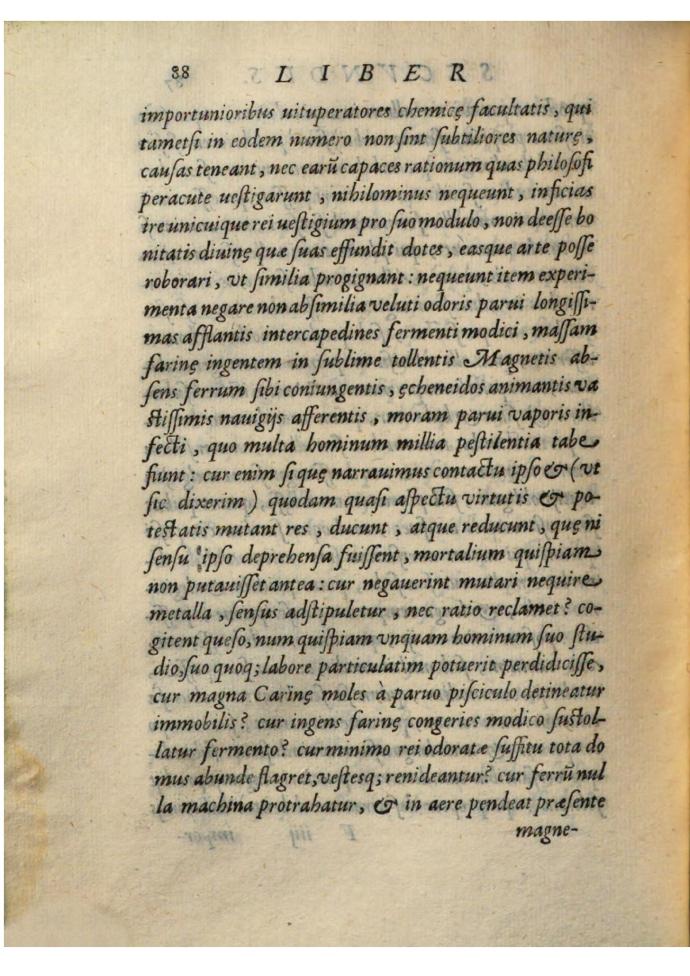 88 LIBER
importunioribus uituperatores chemicę facultatis, qui
tametſi in eodem numero non ſint ſubtiliores naturę,
cauſas teneant, nec earũ capaces rationum quas philoſofi
peracute ueſtigarunt, nihilominus nequeunt, inficias
ire unicuique rei ueſtigium pro ſuo modulo, non deeſſe bo
nitatis diuinę quæ ſuas effundit dotes, easque arte poſſe
roborari, vt ſimilia progignant: nequeunt item experi-
menta negare non abſimilia veluti odoris parui longiſſi-
mas afflantis intercapedines fermenti modici, maſſam
farinę ingentem in ſublime tollentis Magnetis ab-
ſens ferrum ſibi coniungentis, ęcheneidos animantis va
ſtiſſimis nauigijs afferentis, moram parui vaporis in-
fecti, quo multa hominum millia peſtilentia tabe
fiunt: cur enim ſi quę narrauimus contactu ipſo & (vt
ſic dixerim) quodam quaſi aſpectu virtutis & po-
teſtatis mutant res, ducunt, atque reducunt, quę ni
ſenſu ipſo deprehenſa fuiſſent, mortalium quiſpiam
non putauiſſet antea: cur negauerint mutari nequire
metalla, ſenſus adſtipuletur, nec ratio reclamet? co-
gitent queſo, num quiſpiam vnquam hominum ſuo ſtu-
dio, ſuo quoq; labore particulatim potuerit perdidiciſſe,
cur magna Carinę moles à paruo piſciculo detineatur
immobilis? cur ingens farinę congeries modico ſuſtol-
latur fermento? cur minimo rei odoratæ ſuffitu tota do
mus abunde flagret, veſtesq; renideantur? cur ferrũ nul
la machina protrahatur, & in aere pendeat præſente
magne-